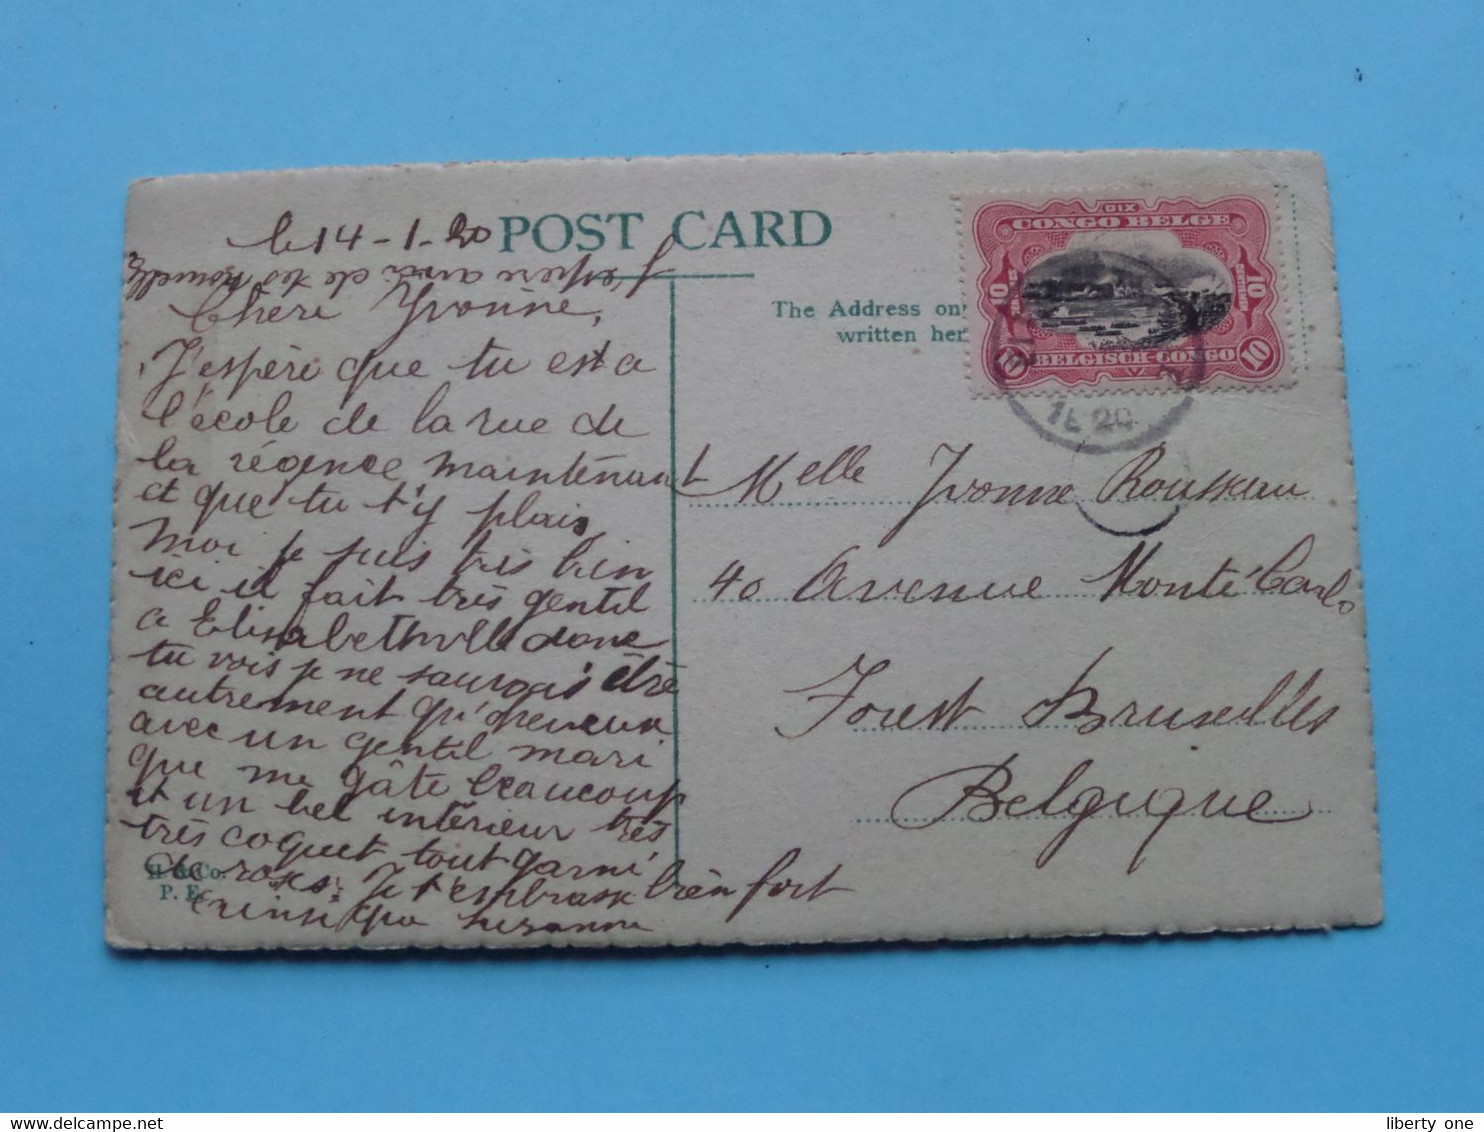 le 14-1-20
POST CARD
J'espère avoir de tes nouvelles
Chère Yvonne,
J'espère que tu est a
l'école de la rue de
la régence maintenant
et que tu t'y plais,
Moi je suis très bien
ici il fait très gentil
a Elisabethville donc
tu vois je ne saurais être
autrement qu'heureux
avec un gentil mari
que me gâte beaucoup
et un bel intérieur très
très coquet tout garni
de roses. Je t'embrasse bien fort
ainsi que Suzanne
H. & Co.
P. E.
The Address on
written her
DIX
CONGO BELGE
10 10
BELGISCH-CONGO
10 10
V
20
Melle Yvonne Rousseau
40 Avenue Monté Carlo
Forest Bruxelles
Belgique
liberty one